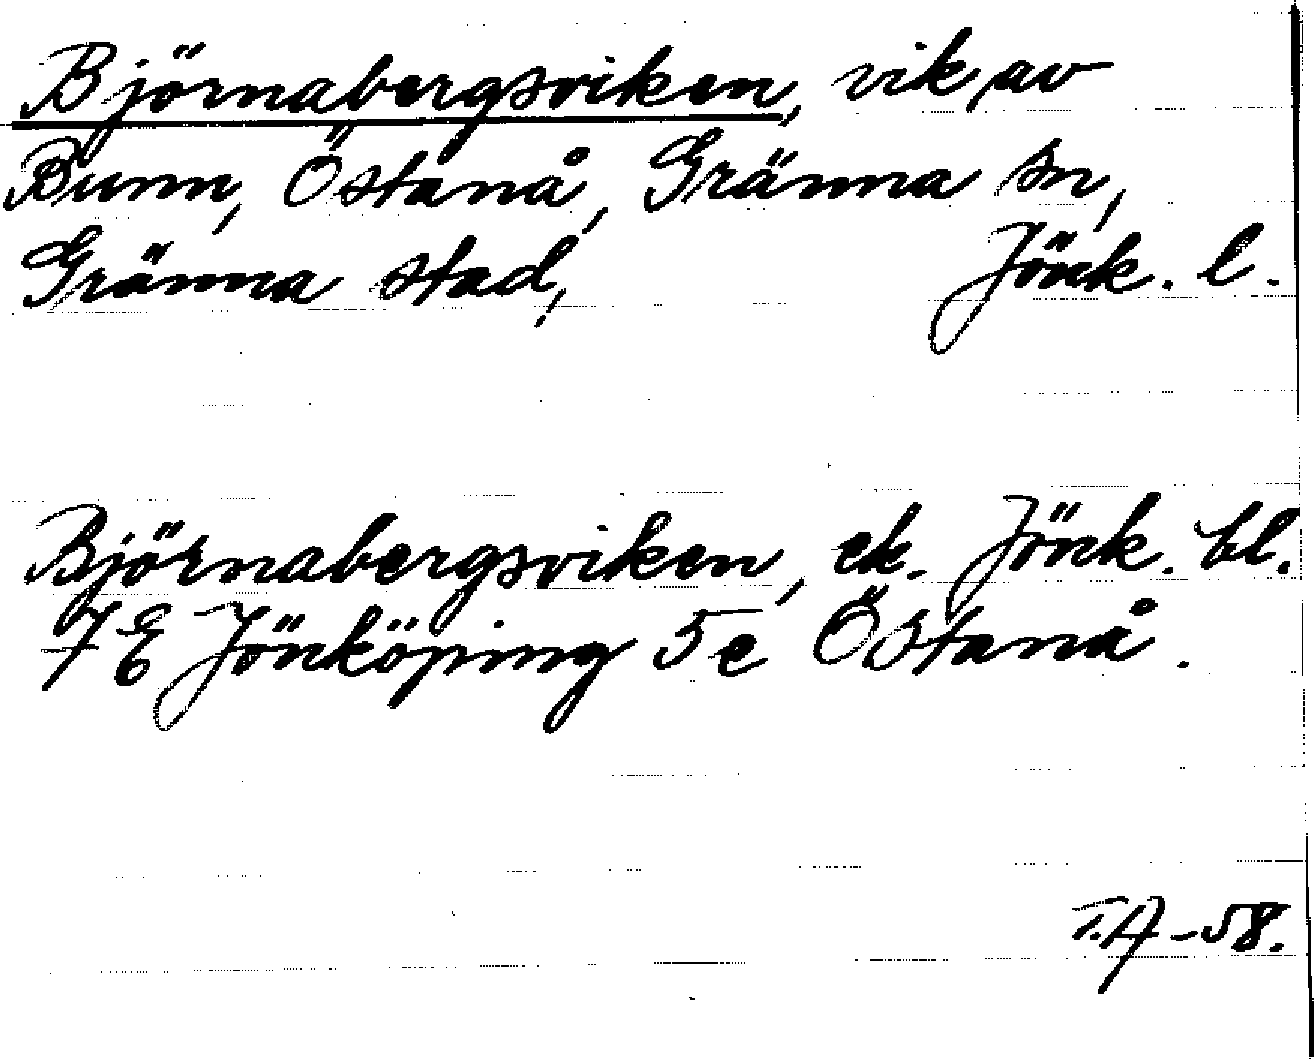 Björnabergsviken, vik av
Bunn, Östanå, Gränna sn,
Gränna stad, Jönk. l.
Björnabergsviken, ek. Jönk. bl.
7 E Jönköping 5 e Östanå.
T.A -58.